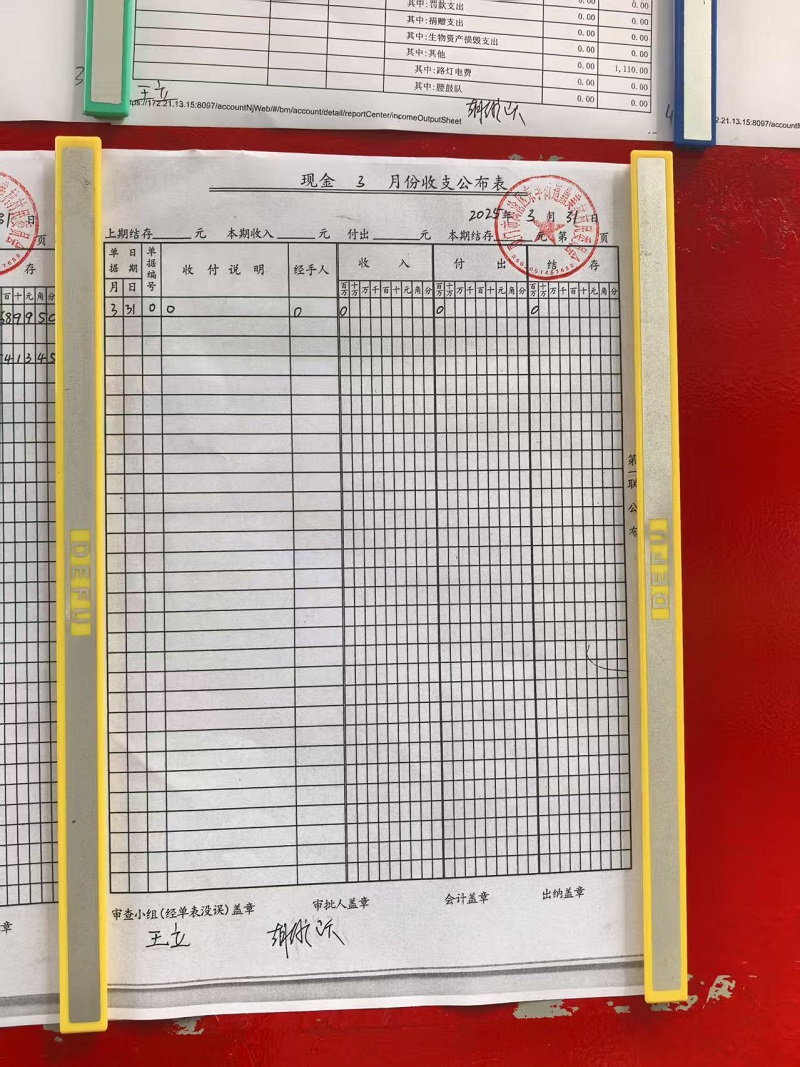 其中:罚款支出 0.00 0.00
其中:捐赠支出 0.00 0.00
其中:生物资产损毁支出 0.00 0.00
其中:其他 0.00 0.00
其中:路灯电费 0.00 1,110.00
其中:腰鼓队 0.00 0.00
王立
ps://172.21.13.15:8097/accountNjWeb/#/bm/account/detail/reportCenter/incomeOutputSheet
2.21.13.15:8097/account
现金 3 月份收支公布表
2025年 3 月 31 日
上期结存 元 本期收入 元 付出 元 本期结存 元 第 页
单据 日期 单据编号 收付说明 经手人 收入 付出 结存
月 日 百万 十万 万 千 百 十 元 角 分 百万 十万 万 千 百 十 元 角 分 百万 十万 万 千 百 十 元 角 分
3 31 0 0 0 0 0 0
第一联 公布
审查小组(经单表没误)盖章 审批人盖章 会计盖章 出纳盖章
王立
31日
页
存
百 十 元 角 分
689950
41345
章
DEFU
DEFU